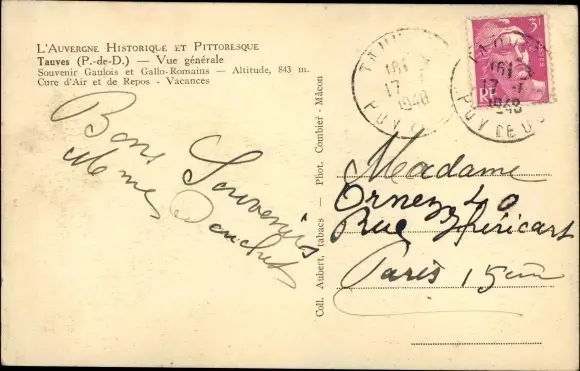 L'Auvergne Historique et Pittoresque
Tauves (P.-de-D.) — Vue générale
Souvenir Gaulois et Gallo-Romains — Altitude, 843 m.
Cure d'Air et de Repos - Vacances
Bons Souvenirs
Coll. Aubert, tabacs — Phot. Combier - Mâcon
3F
POSTES
RF
16H
17 -
1948
PUY
TAUVES
16H
17 -
1948
PUY DE D
Madame
40
Rue Héricart
Paris 15em